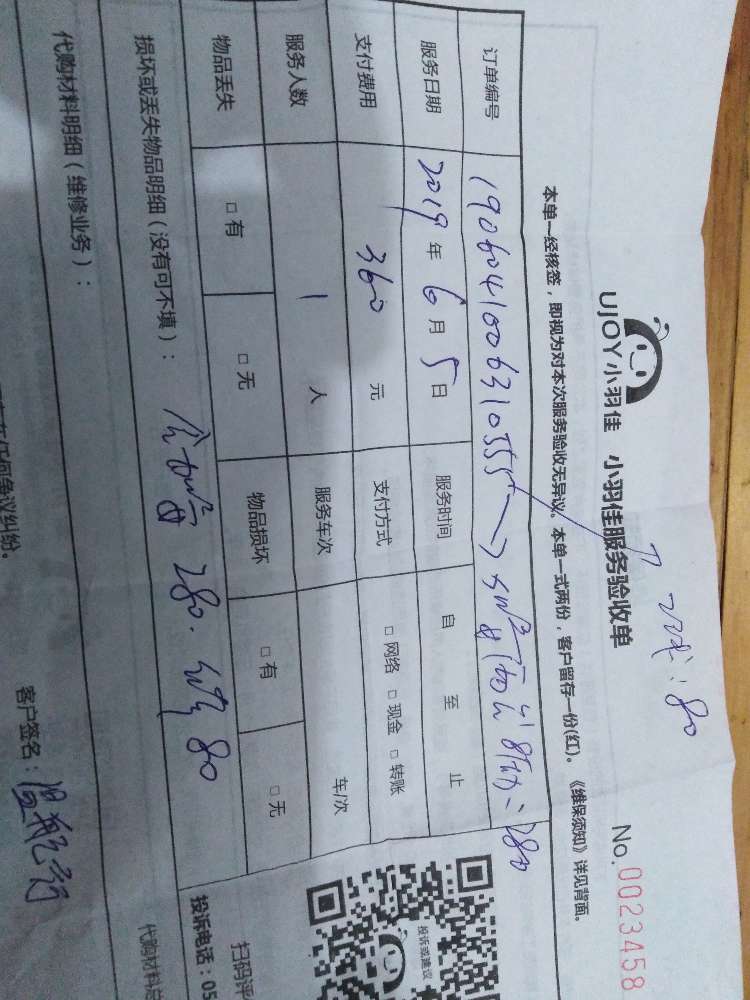 UJOY小羽佳 小羽佳服务验收单
No.0023458
本单一经核签，即视为对本次服务验收无异议。本单一式两份，客户留存一份(红)。《维保须知》详见背面。
: 80
订单编号 190604100631055
280
服务日期 2019 年 6 月 5 日 服务时间 自 至 止
支付费用 360 元 支付方式 □ 网络 □ 现金 □ 转账
服务人数 1 人 服务车次 车/次
物品丢失 □ 有 □ 无 物品损坏 □ 有 □ 无
损坏或丢失物品明细（没有可不填）：
280. 80
代购材料明细（维修业务）：
代购材料总
客户签名：
任何争议纠纷。
投诉或建议
扫码评
投诉电话：05